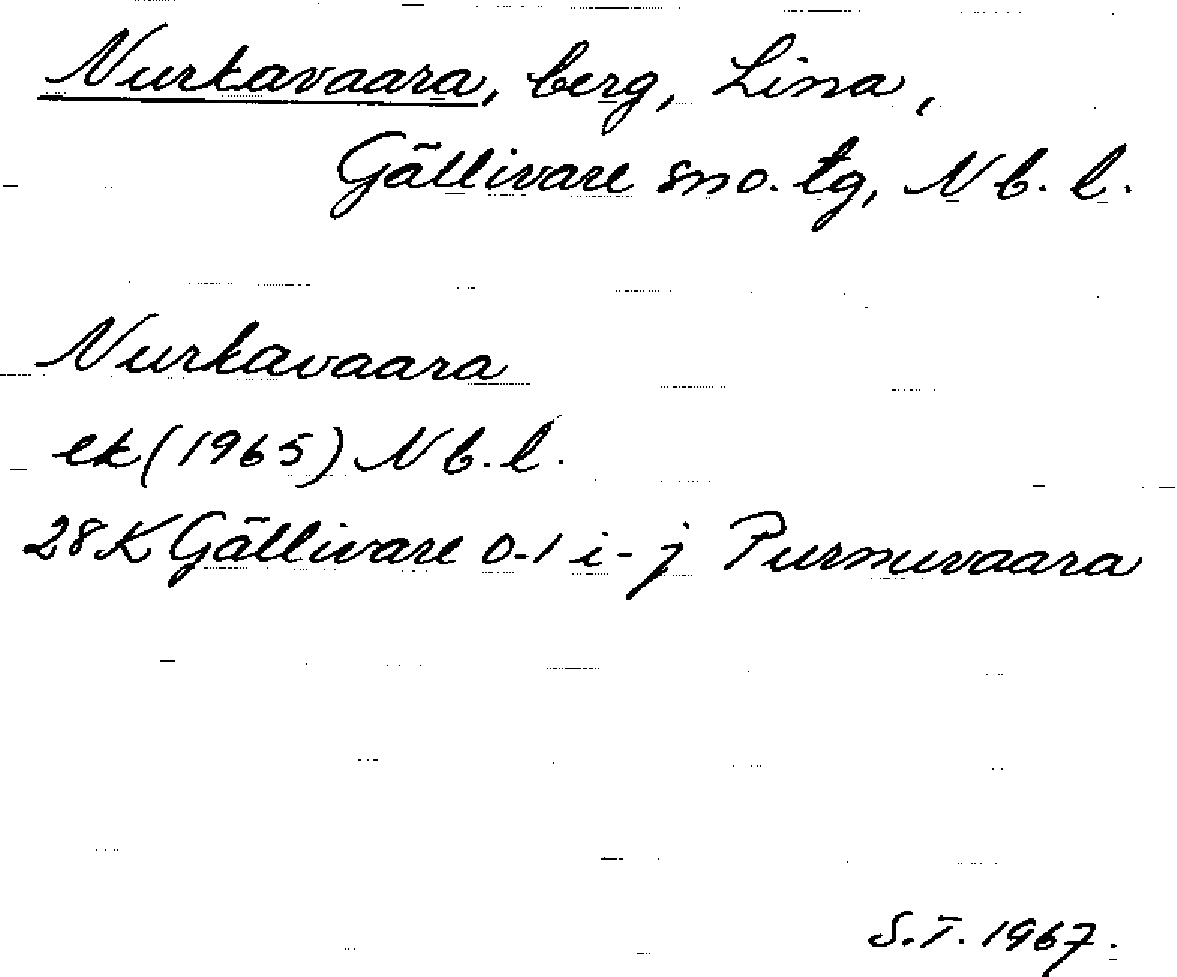 Nurkavaara, berg, Lina,
Gällivare sno. tg, Nb. l.
Nurkavaara
ek (1965) Nb. l.
28K Gällivare 0-1 i-j Purnuvaara
S.T. 1967.